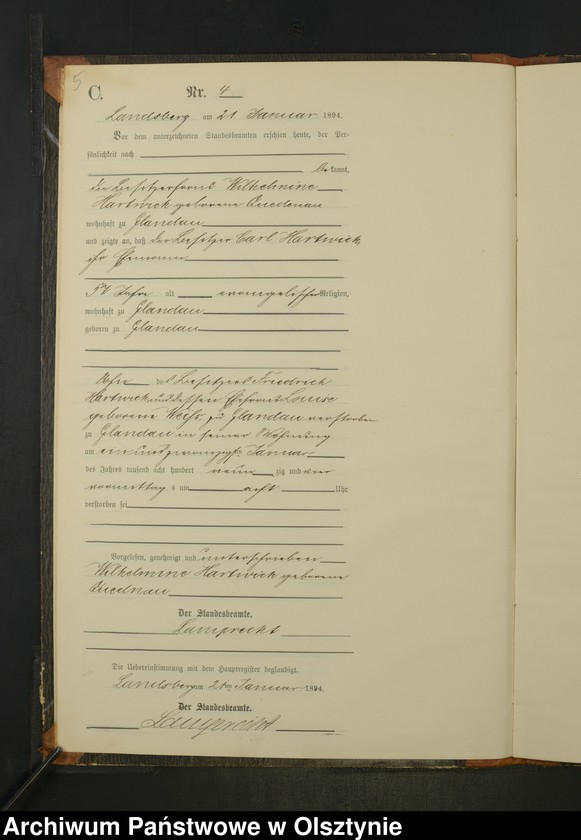 5
C. Nr. 4
Landsberg am 21 Januar 1894.
Vor dem unterzeichneten Standesbeamten erschien heute, der Per-
sönlichkeit nach
bekannt,
die Besitzerfrau Wilhelmine
Hartwick geborene Quednau
wohnhaft zu Glandau
und zeigte an, daß der Besitzer Carl Hartwick
ihr Ehemann
Jahre alt evangelischer Religion,
wohnhaft zu Glandau
geboren zu Glandau
Sohn des Besitzers Friedrich
Hartwick und dessen Ehefrau Louise
geborene Weiß, zu Glandau verstorben
zu Glandau in seiner Wohnung
am einundzwanzigsten Januar
des Jahres tausend acht hundert neun zig und vier
vormittag s um acht Uhr
verstorben sei
Vorgelesen, genehmigt und unterschrieben
Wilhelmine Hartwick geborene
Quednau
Der Standesbeamte.
Lamprecht
Die Uebereinstimmung mit dem Hauptregister beglaubigt.
Landsberg am 21ten Januar 1894.
Der Standesbeamte.
Lamprecht
Archiwum Państwowe w Olsztynie